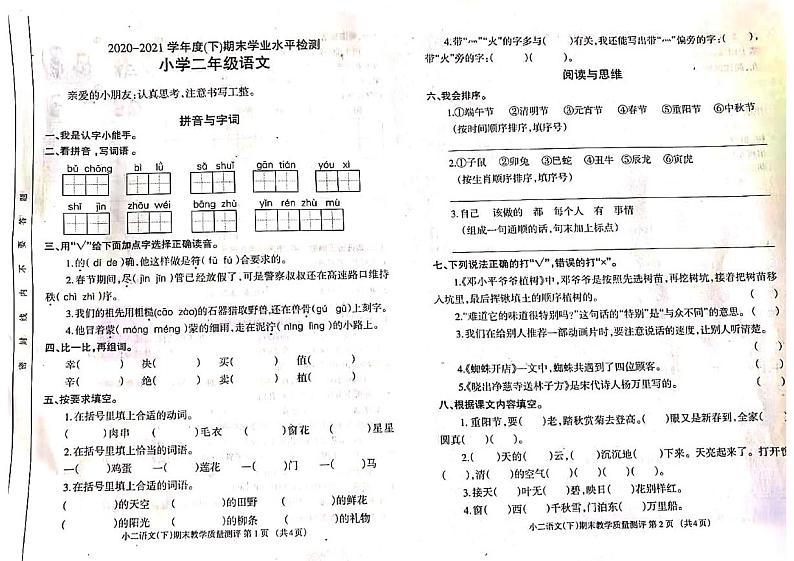 2020-2021 学年度(下)期末学业水平检测
小学二年级语文
亲爱的小朋友:认真思考,注意书写工整。
拼音与字词
一、我是认字小能手。
二、看拼音,写词语。
bǔ chōng bì lǜ sǎ shuǐ gān tián yóu xì
shī jìn zhōu wéi bāng zhù yīn rén zhù mù
三、用“√”给下面加点字选择正确读音。
1.的( dí de )确,他这样做是符( fú fǔ )合要求的。
2.春节期间,尽( jìn jǐn )管已经放假了,可是警察叔叔还在高速路口维持
秩( chì zhì )序。
3.我们的祖先用粗糙(cāo zào)的石器猎取野兽,还在兽骨(gú gǔ)上刻字。
4.他冒着蒙( móng méng )蒙的细雨,走在泥泞( nìng lìng )的小路上。
四、比一比,再组词。
幸( ) 决( ) 买( ) 值( )
辛( ) 绝( ) 卖( ) 植( )
五、按要求填空。
1.在括号里填上合适的动词。
( )肉串 ( )毛衣 ( )窗花 ( )星星
2.在括号里填上恰当的词语。
一( )鸡蛋 一( )莲花 一( )门 一( )马
3.在括号里填上合适的词语。
( )的天空 ( )的田野 ( )的鲜花
( )的阳光 ( )的柳条 ( )的礼物
小二语文(下)期末教学质量测评 第 1 页 (共 4 页)
密 封 线 内 不 要 答 题
4.带“灬”“火”的字多与( )有关,我还能写出带“灬”偏旁的字:( )( ),
带“火”旁的字:( )( )
阅读与思维
六、我会排序。
1.①端午节 ②清明节 ③元宵节 ④春节 ⑤重阳节 ⑥中秋节
(按时间顺序排序,填序号)
2.①子鼠 ②卯兔 ③巳蛇 ④丑牛 ⑤辰龙 ⑥寅虎
(按生肖顺序排序,填序号)
3.自己 该做的 都 每个人 有 事情
(组成一句通顺的话,句末加上标点)
七、下列说法正确的打“√”,错误的打“×”。
1.《邓小平爷爷植树》中,邓爷爷是按照先选树苗,再挖树坑,接着把树苗移
入坑里,最后挥锹填土的顺序植树的。 ( )
2.“难道它的味道很特别吗?”这句话的“特别”是“与众不同”的意思。 ( )
3.我们在给别人推荐一部动画片时,要注意说话的速度,让别人听清楚。
( )
4.《蜘蛛开店》一文中,蜘蛛共遇到了四位顾客。 ( )
5.《晓出净慈寺送林子方》是宋代诗人杨万里写的。 ( )
八、根据课文内容填空。
1.重阳节,要( )老,踏秋赏菊去登高。( )眼又是新春到,全家(
圆真( )( )。
2.( )天的( )云,( )沉沉地( )下来。天亮起来了。打开
( ),清( )的空气( )( )( )( )。
3.接天( )叶无( )碧,映日( )花别样红。
4.窗( )西( )千秋雪,门泊东( )万里船。
小二语文(下)期末教学质量测评 第 2 页 (共 4 页)